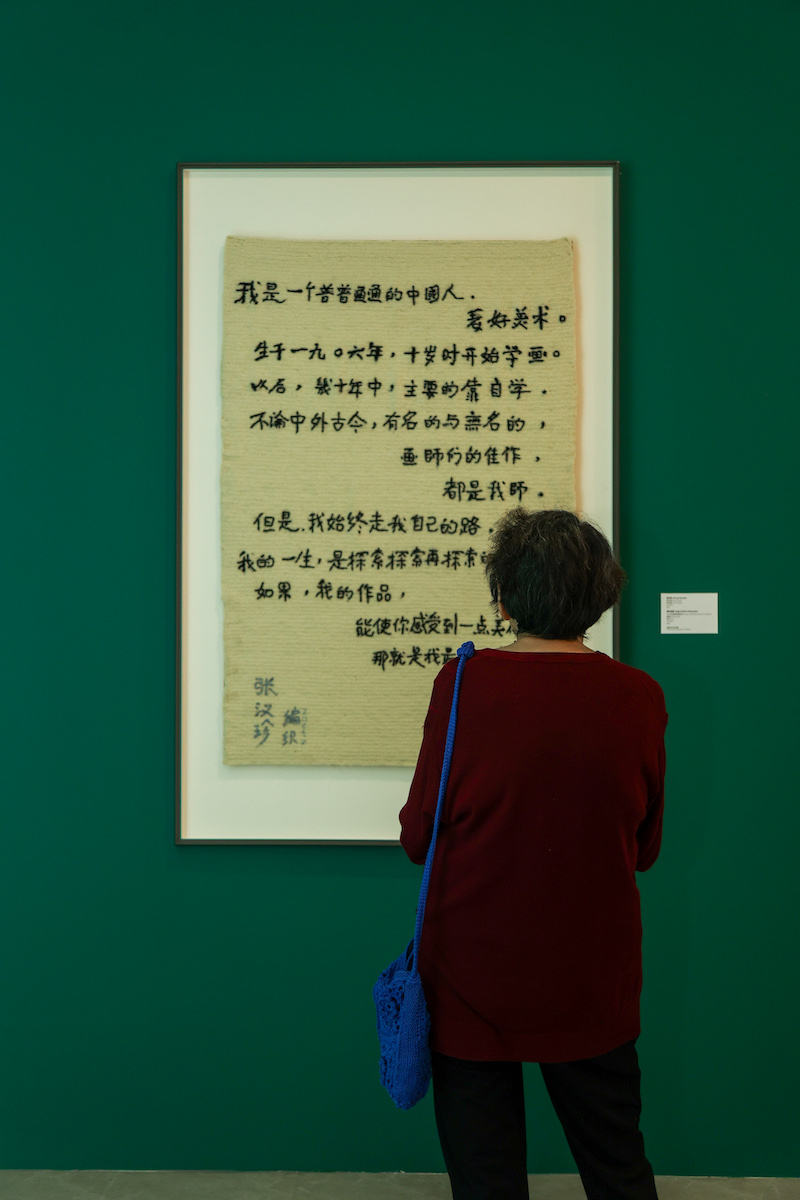 我是一个普普通通的中國人.
爱好美术。
生于一九〇六年，十岁时开始学画。
以后，幾十年中，主要的靠自学.
不論中外古今，有名的与無名的，
画師们的佳作，
都是我師.
但是.我始终走我自己的路.
我的一生，是探索探索再探索
如果，我的作品，
能使你感受到一点美
那就是我
张汉珍
编织